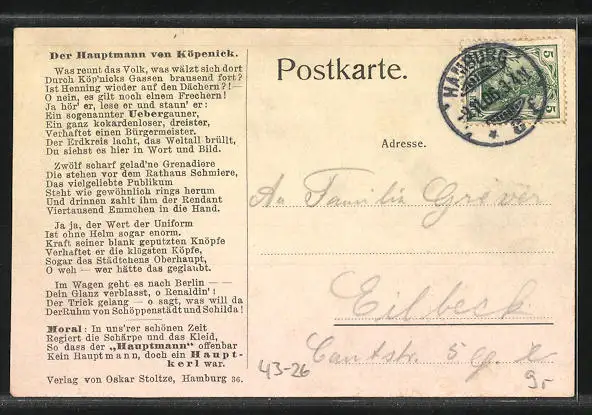 Der Hauptmann von Köpenick.
Was rennt das Volk, was wälzt sich dort
Durch Köp'nicks Gassen brausend fort?
Ist Henning wieder auf den Dächern?!—
O nein, es gilt noch einem Frechern!
Ja hör' er, lese er und staun' er:
Ein sogenannter Uebergauner,
Ein ganz kokardenloser, dreister,
Verhaftet einen Bürgermeister.
Der Erdkreis lacht, das Weltall brüllt,
Du siehst es hier in Wort und Bild.
Zwölf scharf gelad'ne Grenadiere
Die stehen vor dem Rathaus Schmiere,
Das vielgeliebte Publikum
Steht wie gewöhnlich rings herum
Und drinnen zahlt ihm der Rendant
Viertausend Emmchen in die Hand.
Ja ja, der Wert der Uniform
Ist ohne Helm sogar enorm.
Kraft seiner blank geputzten Knöpfe
Verhaftet er die klügsten Köpfe,
Sogar des Städtchens Oberhaupt,
O weh — wer hätte das geglaubt.
Im Wagen geht es nach Berlin — —
Dein Glanz verblasst, o Renaldin'!
Der Trick gelang — o sagt, was will da
Der Ruhm von Schöppenstädt und Schilda!
Moral: In uns'rer schönen Zeit
Regiert die Schärpe und das Kleid,
So dass der „Hauptmann" offenbar
Kein Hauptmann, doch ein Haupt-
kerl war.
Verlag von Oskar Stoltze, Hamburg 36.
Postkarte.
HAMBURG
5
5
Adresse.
An Familie Grever
Eilbeck
Cantstr. 5
43-26